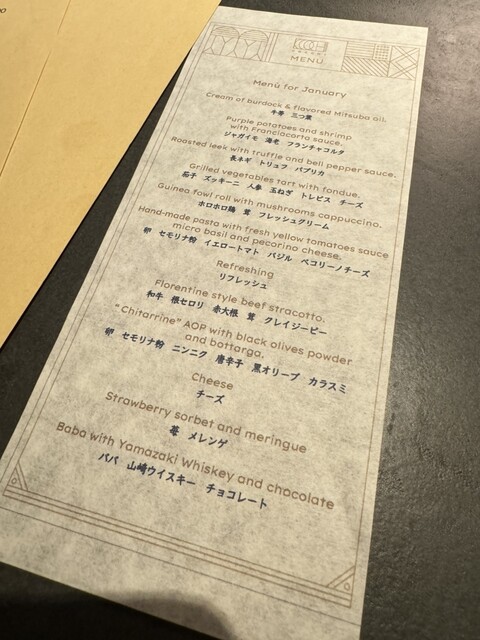 MENÙ
Menù for January
Cream of burdock & flavored Mitsuba oil.
牛蒡 三つ葉
Purple potatoes and shrimp
with Franciacorta sauce.
ジャガイモ 海老 フランチャコルタ
Roasted leek with truffle and bell pepper sauce.
長ネギ トリュフ パプリカ
Grilled vegetables tart with fondue.
茄子 ズッキーニ 人参 玉ねぎ トレビス チーズ
Guinea fowl roll with mushrooms cappuccino.
ホロホロ鶏 茸 フレッシュクリーム
Hand-made pasta with fresh yellow tomatoes sauce
micro basil and pecorino cheese.
卵 セモリナ粉 イエロートマト バジル ペコリーノチーズ
Refreshing
リフレッシュ
Florentine style beef stracotto.
和牛 根セロリ 赤大根 茸 クレイジーピー
"Chitarrine" AOP with black olives powder
and bottarga.
卵 セモリナ粉 ニンニク 唐辛子 黒オリーブ カラスミ
Cheese
チーズ
Strawberry sorbet and meringue
苺 メレンゲ
Baba with Yamazaki Whiskey and chocolate
ババ 山崎ウイスキー チョコレート